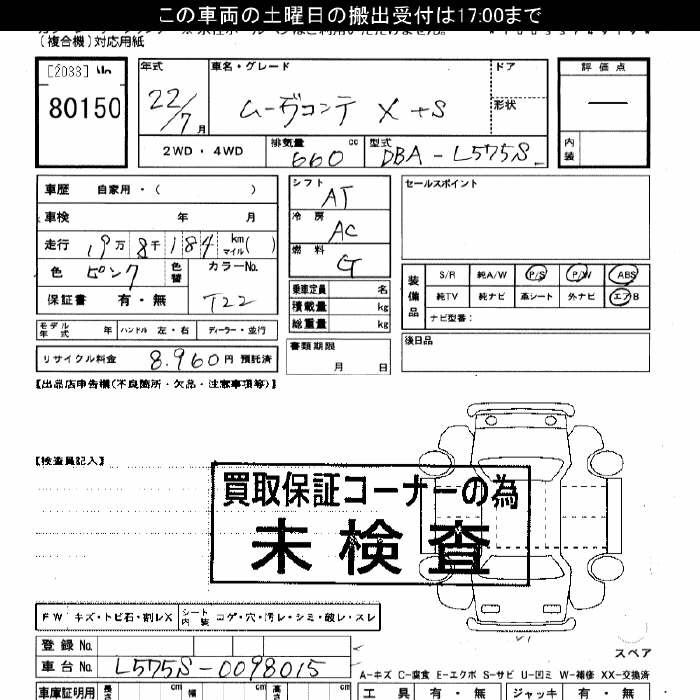 この車両の土曜日の搬出受付は17:00まで
(複合機)対応用紙
[2033] No
80150
年式
22/7 月
車名・グレード
ムーヴコンテ X +S
ドア
形状
評価点
—
内装
2WD・4WD
排気量 cc
660
型式
DBA-L575S
車歴 自家用・( )
車検 年 月
走行 19万8千184 km マイル( )
色 ピンク
色替
カラーNo.
T22
保証書 有・無
モデル年式 年
ハンドル 左・右
ディーラー・並行
リサイクル料金 8,960円 預託済
シフト
AT
冷房
AC
燃料
G
乗車定員 名
積載量 kg
総重量 kg
書類期限
月 日
セールスポイント
装備品
S/R 純A/W P/S P/W ABS
純TV 純ナビ 革シート 外ナビ エアB
ナビ型番:
後日品
【出品店申告欄(不良箇所・欠品・注意事項等)】
【検査員記入】
買取保証コーナーの為
未検査
FW キズ・トビ石・割レX
シート内装 コゲ・穴・汚レ・シミ・破レ・スレ
登録No.
車台No. L575S-0098015
スペア
A-キズ C-腐食 E-エクボ S-サビ U-凹ミ W-補修 XX-交換済
車庫証明用 長さ cm 幅 cm 高さ cm
工具 有・無 ジャッキ 有・無